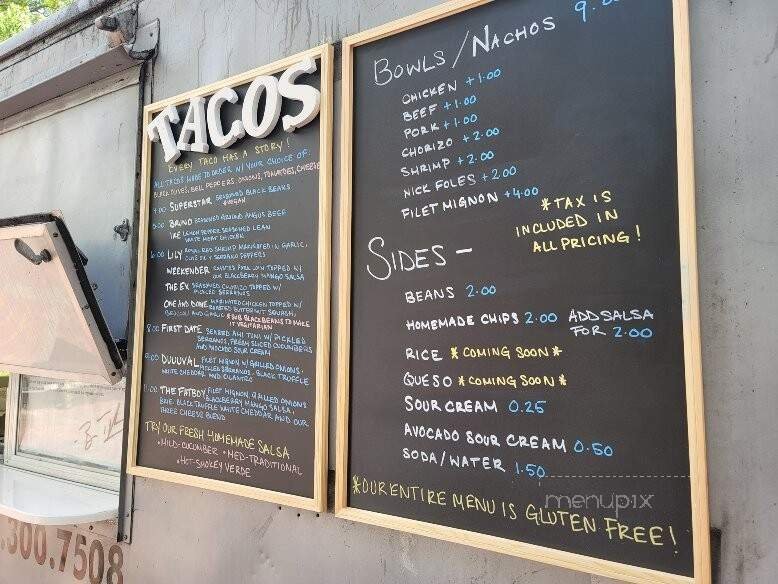 TACOS
EVERY TACO HAS A STORY!
ALL TACOS MADE TO ORDER W/ YOUR CHOICE OF
BLACK OLIVES, BELL PEPPERS, ONIONS, TOMATOES, CHEESE
4.00 SUPERSTAR SEASONED BLACK BEANS
*VEGAN
5.00 BRUNO SEASONED GROUND ANGUS BEEF
IKE LEMON PEPPER SEASONED LEAN
WHITE MEAT CHICKEN
6.00 LILY ROYAL RED SHRIMP MARINATED IN GARLIC,
& SERRANO PEPPERS
WEEKENDER PORK LOIN TOPPED W/
OUR BLACKBERRY MANGO SALSA
THE EX SEASONED CHORIZO TOPPED W/
PICKLED SERRANOS
ONE AND DONE MARINATED CHICKEN TOPPED W/
ROASTED BUTTERNUT SQUASH,
BROCCOLI AND GARLIC *SUB BLACK BEANS TO MAKE
IT VEGETARIAN
8.00 FIRST DATE SEARED AHI TUNA W/ PICKLED
SERRANOS, FRESH SLICED CUCUMBERS
AND AVOCADO SOUR CREAM
9.00 DUUUVAL FILET MIGNON W/ GRILLED ONIONS,
PICKLED SERRANOS, BLACK TRUFFLE
WHITE CHEDDAR AND CILANTRO
11.00 THE FATBOY FILET MIGNON, GRILLED ONIONS
BLACKBERRY MANGO SALSA,
BLACK TRUFFLE WHITE CHEDDAR AND OUR
THREE CHEESE BLEND
TRY OUR FRESH HOMEMADE SALSA
•MILD-CUCUMBER •MED-TRADITIONAL
•HOT-SMOKEY VERDE
BOWLS/NACHOS 9.00
CHICKEN +1.00
BEEF +1.00
PORK +1.00
CHORIZO +2.00
SHRIMP +2.00
NICK FOLES +2.00
FILET MIGNON +4.00
*TAX IS
INCLUDED IN
ALL PRICING!
SIDES -
BEANS 2.00
HOMEMADE CHIPS 2.00 ADD SALSA
FOR 2.00
RICE *COMING SOON*
QUESO *COMING SOON*
SOUR CREAM 0.25
AVOCADO SOUR CREAM 0.50
SODA/WATER 1.50
*OUR ENTIRE MENU IS GLUTEN FREE!
menupix
.300.7508